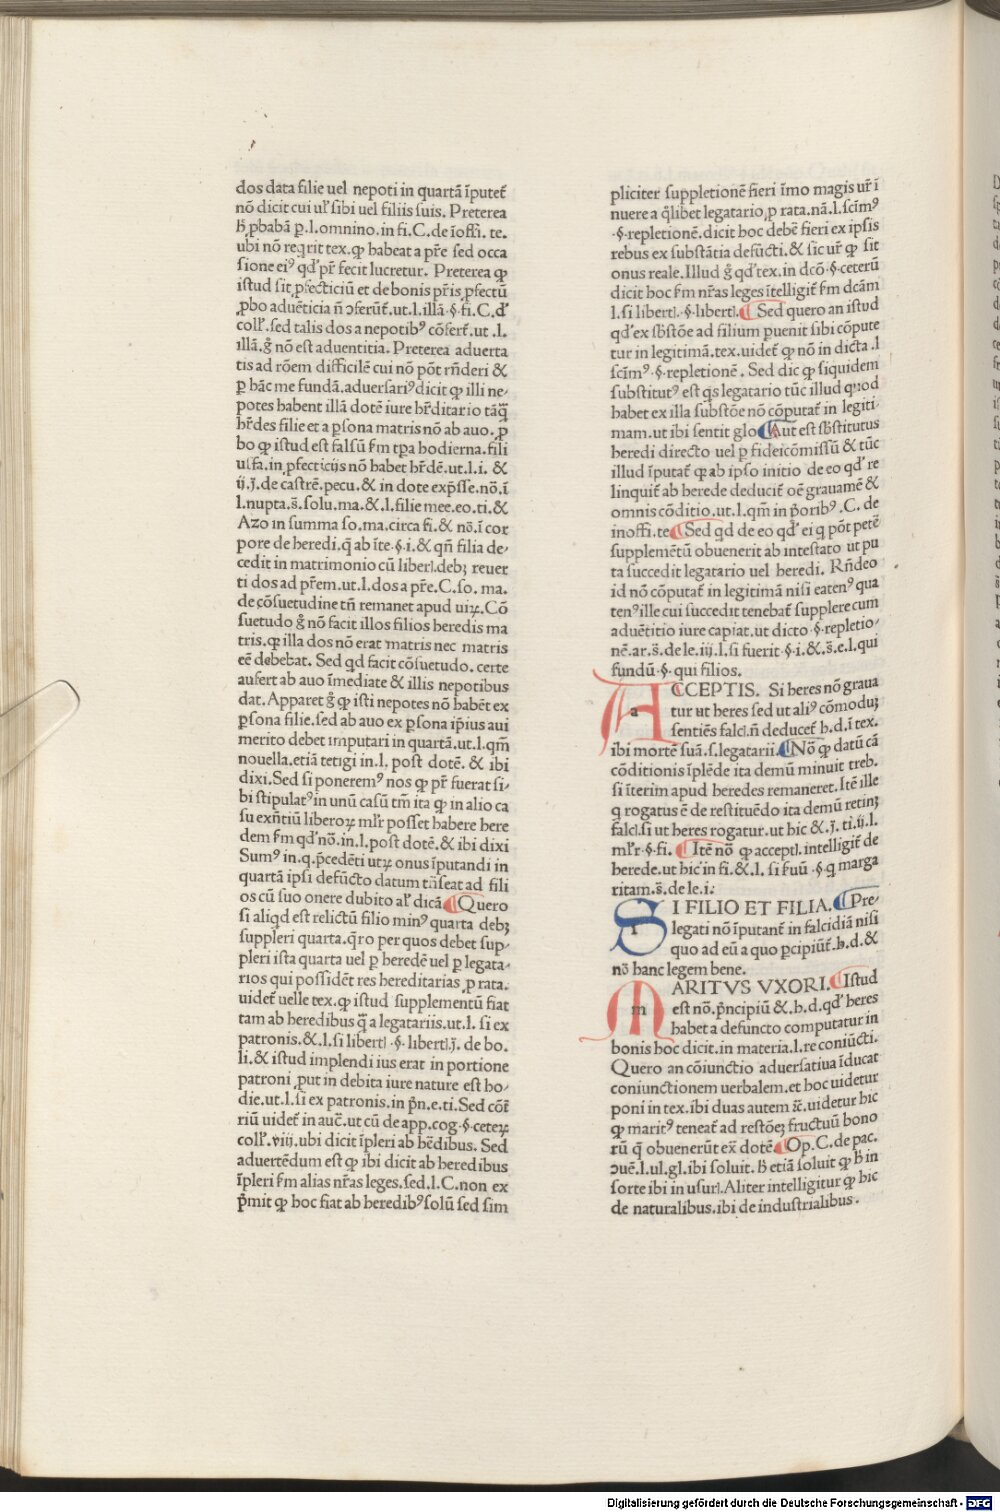 dos data filie uel nepoti in quartā īputet᷑
nō dicit cui uł sibi uel filiis suis. Preterea
ƕ ꝓbabā ꝑ.l.omnino.in fi.C.de īoffi. te.
ubi nō reꝗrit tex.ꝙ habeat a pr̄e sed occa
sione eiꝰ qđ pr̄ fecit lucretur. Preterea ꝙ
istud sit ꝓfecticiū et de bonis pr̄is ꝓfectū
ꝓbo aduēticia ñ ↄferūt᷑.ut.l.illā.§.fi.C.đ
coll̄.sed talis dos a nepotibꝰ cōfert᷑.ut .l.
illā.g̊ nō est aduentitia. Preterea aduerta
tis ad rōem difficilē cui nō pōt rñderi &
ꝑ hāc me fundā.aduersariꝰ dicit ꝙ illi ne/
potes habent illā dotē iure hr̄ditario tāq̄
hr̄des filie et a ꝑsona matris nō ab auo. ꝓ
bo ꝙ istud est falsū ẜm tꝑa hodierna.fili
usfa.in ꝓfecticijs nō habet hr̄dē.ut.l.i. &
ij.j.de castrē.pecu.& in dote exp̄sse.nō.ī
l.nupta.s̄.solu.ma.&.l.filie mee.eo.ti.&
Azo in summa so.ma.circa fi.& nō.ī cor
pore de heredi.q̄ ab īte.§.i.& qñ filia de/
cedit in matrimonio cū liberl.debꝫ reuer
ti dos ad pr̄em.ut.l.dos a pr̄e.C.so. ma.
de cōsuetudine tñ remanet apud uiꝝ.Cō
suetudo g̊ nō facit illos filios heredis ma
tris.ꝙ illa dos nō erat matris nec matris
eē debebat. Sed ꝗd facit cōsuetudo. certe
aufert ab auo īmediate & illis nepotibus
dat. Apparet g̊ ꝙ isti nepotes nō habēt ex
ꝑsona filie.sed ab auo ex ꝑsona ip̄ius aui
merito debet imputari in quartā.ut.l.qm̄
nouella.etiā tetigi in.l. post dotē. & ibi
dixi.Sed si poneremꝰ nos ꝙ pr̄ fuerat si/
bi stipulatꝰ in unū casū tm̄ ita ꝙ in alio ca
su exñtiū liberoꝝ mr̄ posset habere here
dem ẜm qđ nō.in.l.post dotē.& ibi dixi
Sumꝰ in.q.p̄cedēti utꝝ onus īputandi in
quartā ipsi defūcto datum trāseat ad fili
os cū suo onere dubito al̄ dicā. Quero
si aliꝗd est relictū filio minꝰ quarta debꝫ
suppleri quarta.q̄ro per quos debet sup/
pleri ista quarta uel ꝑ heredē uel ꝑ legata/
rios qui possidēt res hereditarias ꝓ rata.
uidet᷑ uelle tex.ꝙ istud supplementū fiat
tam ab heredibus q̄ a legatariis.ut.l. si ex
patronis.&.l.si libertl .§. libertl.j. de bo.
li.& istud implendi ius erat in portione
patroni ꝓut in debita iure nature est ho/
die.ut.l.si ex patronis.in p̄n.e.ti.Sed cōt̄
riū uidet᷑ in auc̄.ut cū de app.cog.§.ceteꝝ
coll̄.viij.ubi dicit īpleri ab hēdibus. Sed
aduertēdum est ꝙ ibi dicit ab heredibus
īpleri ẜm alias nr̄as leges.sed.l.C.non ex
p̄mit ꝙ hoc fiat ab heredibꝰ solū sed sim
pliciter suppletionē fieri īmo magis ur̄ ī
nuere a q̄libet legatario ꝓ rata.nā.l.scīmꝰ
.§.repletionē.dicit hoc debē fieri ex ipsis
rebus ex substātia defūcti.& sic ur̄ ꝙ sit
onus reale.Illud g̊ qđ tex.in dcō.§.ceterū
dicit hoc ẜm nr̄as leges ītelligit᷑ ẜm dcām
l.si libertl.§.libertl. Sed quero an istud
qđ ex sb̄stōe ad filium ꝑuenit sibi cōpute
tur in legitimā.tex.uidet᷑ ꝙ nō in dicta .l
scīmꝰ.§.repletionē. Sed dic ꝙ siquidem
substitutꝰ est q̄s legatario tūc illud quod
habet ex illa substōe nō cōputat᷑ in legiti/
mam.ut ibi sentit glo Aut est sb̄stitutus
heredi directo uel ꝑ fideicōmissū & tūc
illud īputat᷑ ꝙ ab ipso initio de eo qđ re
linquit᷑ ab herede deducit᷑ oē grauamē &
omnis cōditio.ut.l.qm̄ in p̄oribꝰ.C. de
inoffi.te Sed ꝗd de eo qđ ei ꝗ pōt petē
supplemētū obuenerit ab intestato ut pu
ta succedit legatario uel heredi. Rñdeo
id nō cōputat᷑ in legitimā nisi eatenꝰ qua
tenꝰ ille cui succedit tenebat᷑ supplere cum
aduētitio iure capiat.ut dicto .§.repletio/
nē.ar.s̄.de le.iij.l.si fuerit .§.i.&.s̄.e.l.qui
fundū .§. qui filios.
ACCEPTIS. Si heres nō graua
tur ut heres sed ut aliꝰ cōmoduꝫ
sentiēs falcl.ñ deducet᷑ h.d.ī tex.
ibi mortē suā.s.legatarii. Nō ꝙ datū cā
cōditionis īplēde ita demū minuit treb.
si īterim apud heredes remaneret.Itē ille
ꝗ rogatus ē de restituēdo ita demū retinꝫ
falcl.si ut heres rogatur.ut hic &.j. ti.ij.l.
mlr̄ .§.fi. Itē nō ꝙ acceptl.intelligit᷑ de
herede.ut hic in fi.&.l. si ẜuū .§.ꝗ marga
ritam.s̄.de le.i.
SI FILIO ET FILIA. Pre/
legati nō īputant᷑ in falcidiā nisi
quo ad eū a quo ꝑcipiūt᷑.h.d.&
nō hanc legem bene.
MARITVS VXORI. Istud
est nō.p̄ncipiū &.h.d.qđ heres
habet a defuncto computatur in
bonis hoc dicit.in materia.l.re coniūcti.
Quero an cōiunctio aduersatiua īducat
coniunctionem uerbalem.et hoc uidetur
poni in tex.ibi duas autem ⁊c̄.uidetur hic
ꝙ maritꝰ teneat᷑ ad restōeꝫ fructuū bono
rū q̄ obuenerūt ex dotē. Op.C.de pac.
ↄuē.l.ul.gl.ibi soluit. ƕ etiā soluit ꝙ ƕ in
sorte ibi in usurl.Aliter intelligitur ꝙ hic
de naturalibus.ibi de industrialibus.
Digitalisierung gefördert durch die Deutsche Forschungsgemeinschaft - DFG